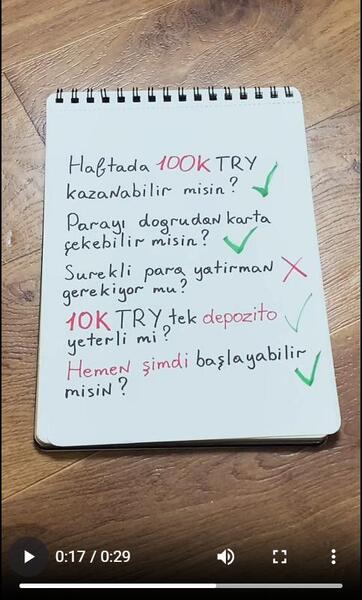 Haftada 100K TRY
kazanabilir misin?
Parayı doğrudan karta
çekebilir misin?
Surekli para yatirman
gerekiyor mu?
10K TRY tek depozito
yeterli mi?
Hemen şimdi başlayabilir
misin?
0:17 / 0:29